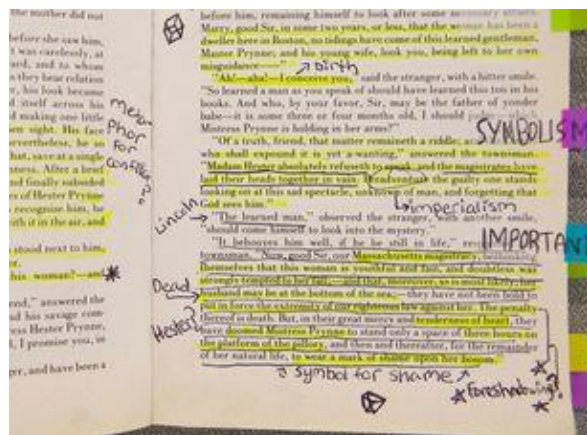 the mother did not
before she saw him,
was carelessly, at
and to whom
they bear relation
his look became
itself across his
making one little
sight. His face
nevertheless, he so
that, save at a single
After a brief
and finally subsided
of Hester Prynne
recognise him, he
with it in the air, and
stood next to him,
his woman?—and
answered the
his savage com-
Hester Prynne,
I promise you, in
and have been a
meta-
phor
for
before him, remaining himself to look after some necessary
Marry, good Sir, in some two years, or less, that the woman has been a
dweller here in Boston, no tidings have come of this learned gentleman,
Master Prynne; and his young wife, look you, being left to her own
misguidance—"
birth
"Ah!—aha!—I conceive you," said the stranger, with a bitter smile.
"So learned a man as you speak of should have learned this too in his
books. And who, by your favor, Sir, may be the father of yonder
babe—it is some three or four months old, I should
Mistress Prynne is holding in her arms?"
SYMBOLISM
"Of a truth, friend, that matter remaineth a riddle;
who shall expound it is yet a wanting," answered the townsman.
"Madam Hester absolutely refuseth to speak, and the magistrates have
laid their heads together in vain. Peradventure the guilty one stands
looking on at this sad spectacle, unknown of man, and forgetting that
God sees him."
imperialism
Lincoln
"The learned man," observed the stranger, with another smile,
"should come himself to look into the mystery."
IMPORTAN
"It behooves him well, if he be still in life,"
townsman. "Now, good Sir, our Massachusetts magistracy, bethinking
themselves that this woman is youthful and fair, and doubtless was
strongly tempted to her fall,—and that, moreover, as is most likely, her
husband may be at the bottom of the sea,—they have not been bold to
put in force the extremity of our righteous law against her. The penalty
thereof is death. But, in their great mercy and tenderness of heart, they
have doomed Mistress Prynne to stand only a space of three hours on
the platform of the pillory, and then and thereafter, for the remainder
of her natural life, to wear a mark of shame upon her bosom."
Dead
Hester?
symbol for shame
Foreshadowing?